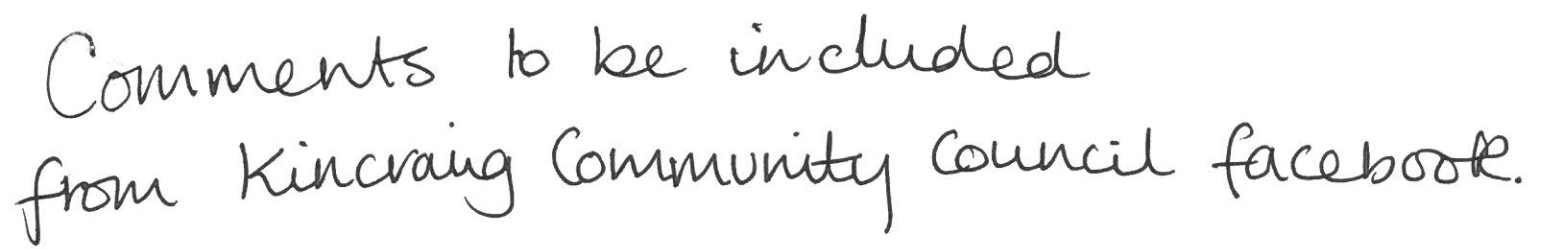 Comments to be included
from Kincraig Community Council facebook.